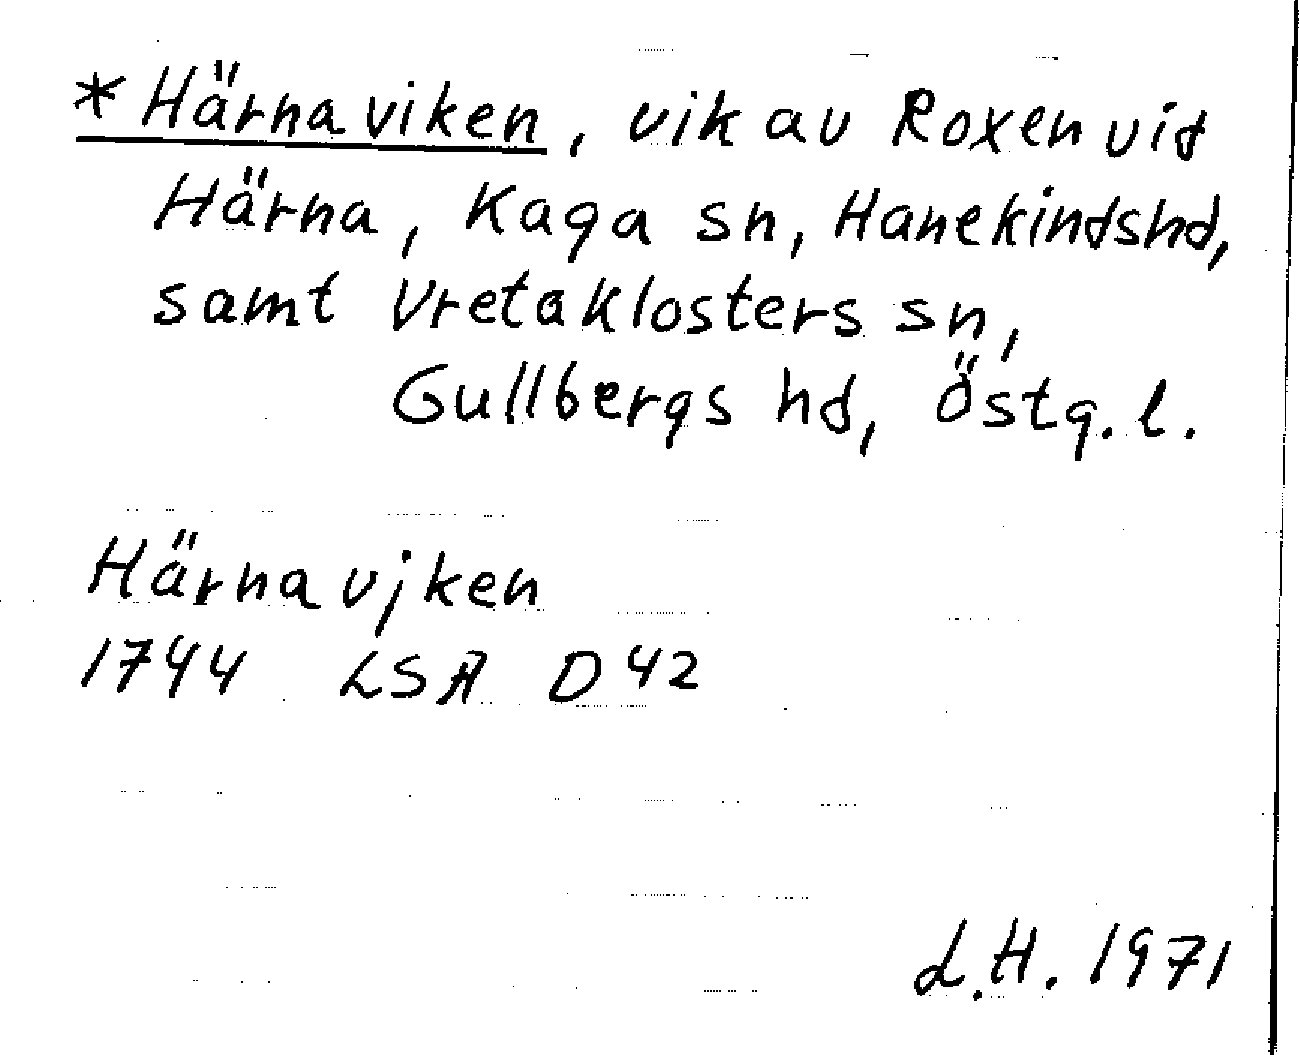 * Härnaviken, vik av Roxen vid
Härna, Kaga sn, Hanekindshd,
samt Vretaklosters sn,
Gullbergs hd, Östg. l.
Härnavjken
1744 LSA D42
L.H. 1971